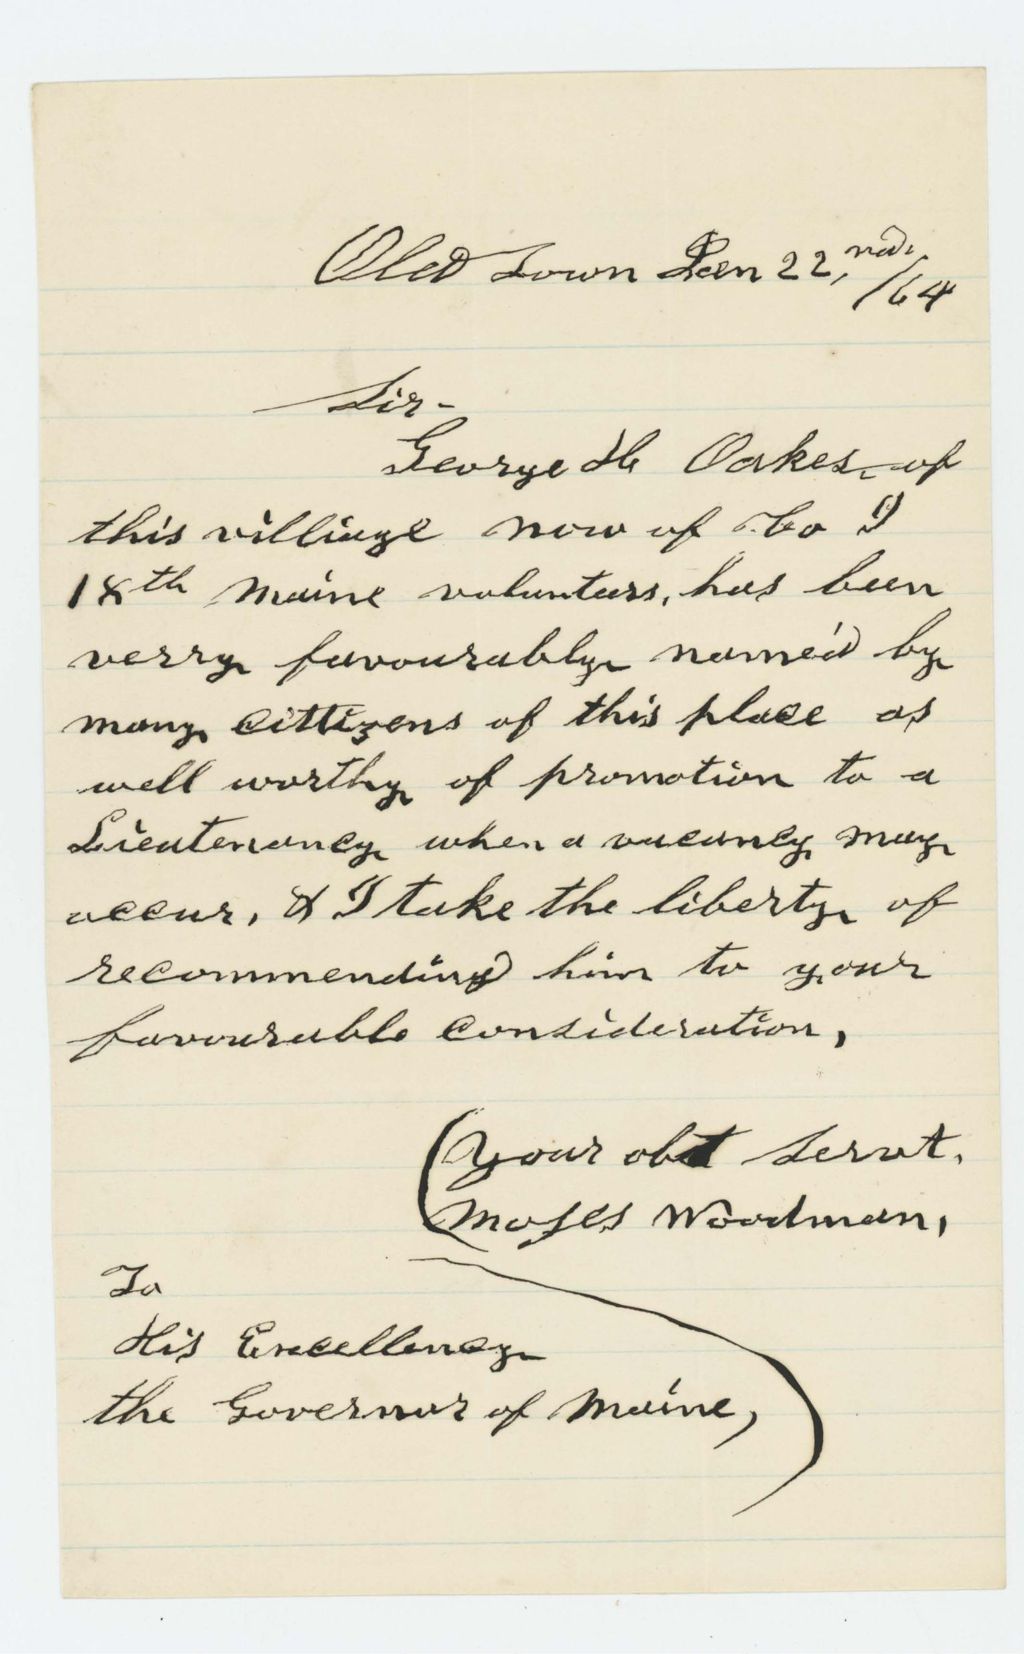 Old Town Jan 22,nd,/64
Sir-
George H Oakes, of
this villiage now of Co I
18th Maine voluntars, has been
verry favourably name'd by
many cittizens of this place as
well worthy of promotion to a
Lieutenancy when a vacancy may
occur, & I take the liberty of
recommending him to your
favourable consideration,
Your obt Servt.
Moses Woodman,
To
His Excellency
the Governor of Maine,